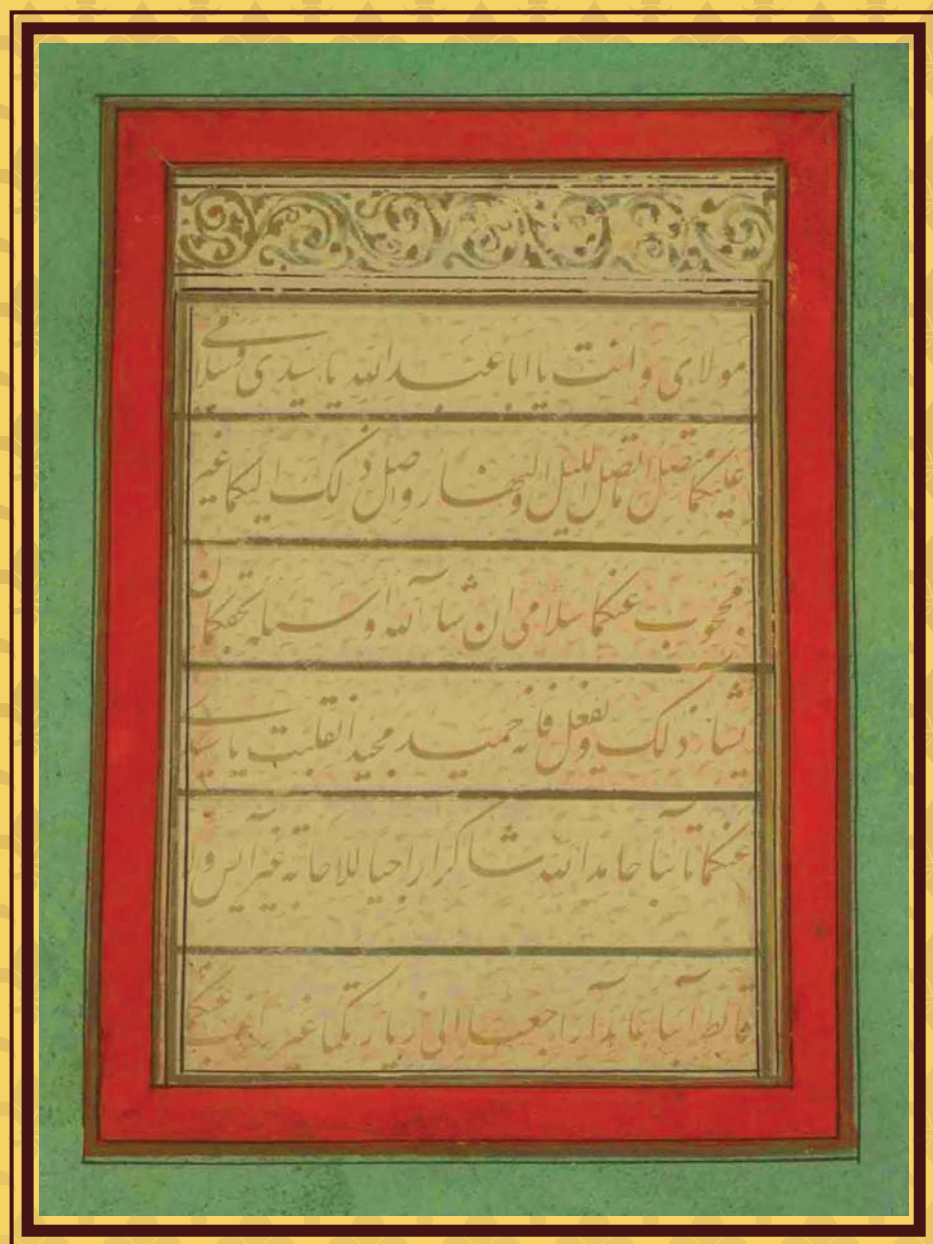 مولاى وانت يا ابا عبد الله يا سيدى وسلامى
عليكما متصل ما اتصل الليل والنهار واصل ذلك اليكما غير
محجوب عنكما سلامى ان شآء الله واسئله بحقكما ان
يشآء ذلك ويفعل فانه حميد مجيد انقلبت يا سيدى
عنكما تآئبا حامدا لله شاكرا راجيا للاجابة غير آيس ولا
قانط آئبا عائدا راجعا الى زيارتكما غير راغب عنكما